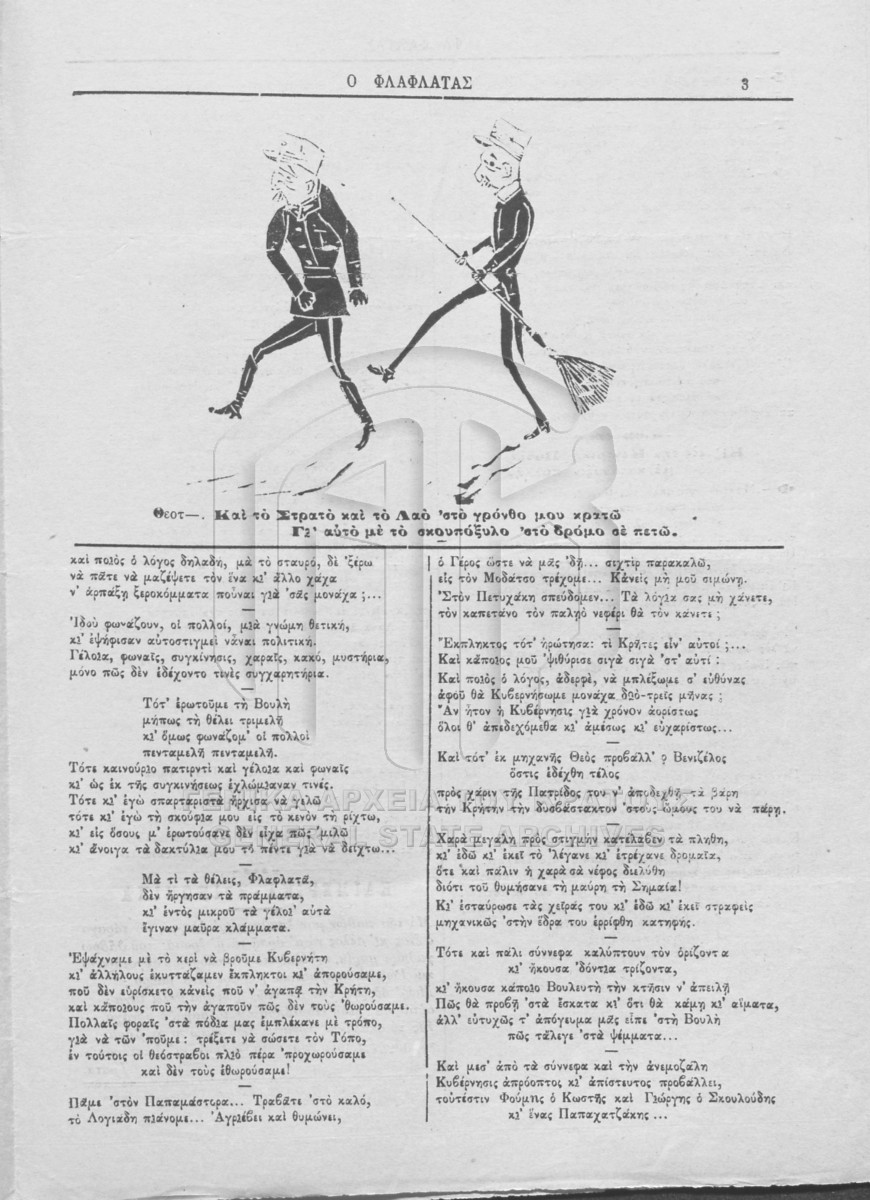 Ο ΦΛΑΦΛΑΤΑΣ
3
Θεοτ—. Καὶ τὸ Στρατὸ καὶ τὸ Λαὸ 'στὸ γρόνθο μου κρατῶ
Γι' αὐτὸ μὲ τὸ σκουπόξυλο 'στὸ δρόμο σὲ πετῶ.
καὶ ποιὸς ὁ λόγος δηλαδή, μὰ τὸ σταυρό, δὲ 'ξέρω
νὰ πᾶτε νὰ μαζέψετε τὸν ἕνα κι' ἄλλο χάχα
ν' ἁρπάξῃ ξεροκόμματα ποὖναι γιὰ 'σᾶς μονάχα ;...
—
Ἰδοὺ φωνάζουν, οἱ πολλοί, μιὰ γνώμη θετική,
κι' ἐψήφισαν αὐτοστιγμεὶ νἆναι πολιτική.
Γέλοια, φωναῖς, συγκίνησις, χαραῖς, κακό, μυστήρια,
μόνο πῶς δὲν ἐδέχοντο τινὲς συγχαρητήρια.
—
Τότ' ἐρωτοῦμε τὴ Βουλὴ
μήπως τὴ θέλει τριμελῆ
κι' ὅμως φωνάζομ' οἱ πολλοὶ
πενταμελῆ πενταμελῆ.
Τότε καινούριο πατιρντὶ καὶ γέλοια καὶ φωναῖς
κι' ὡς ἐκ τῆς συγκινήσεως ἐχλώμιαναν τινές.
Τότε κι' ἐγὼ σπαρταριστὰ ἤρχισα νὰ γελῶ
τότε κι' ἐγὼ τὴ σκούφια μου εἰς τὸ κενὸν τὴ ρίχτω,
κι' εἰς ὅσους μ' ἐρωτούσανε δὲν εἶχα πῶς 'μιλῶ
κι' ἄνοιγα τὰ δακτύλια μου τὰ πέντε γιὰ νὰ δείχτω...
—
Μὰ τὶ τὰ θέλεις, Φλαφλατᾶ,
δὲν ἤργησαν τὰ πράμματα,
κι' ἐντὸς μικροῦ τὰ γέλοι' αὐτὰ
ἔγιναν μαῦρα κλάμματα.
—
Ἐψάχναμε μὲ τὸ κερὶ νὰ βροῦμε Κυβερνήτη
κι' ἀλλήλους ἐκυττάζαμεν ἔκπληκτοι κι' ἀπορούσαμε,
ποῦ δὲν εὑρίσκετο κανεὶς ποῦ ν' ἀγαπᾷ τὴν Κρήτη,
καὶ κάποιους ποῦ τὴν ἀγαποῦν πῶς δὲν τοὺς 'θωρούσαμε.
Πολλαῖς φοραῖς 'στὰ πόδια μας ἐμπλέκανε μὲ τρόπο,
γιὰ νὰ τῶν 'ποῦμε : τρέξετε νὰ σώσετε τὸν Τόπο,
ἐν τούτοις οἱ θεόστραβοι πλιὸ πέρα 'προχωρούσαμε
καὶ δὲν τοὺς ἐθωρούσαμε!
—
Πᾶμε 'στὸν Παπαμάστορα... Τραβᾶτε 'στὸ καλό,
τὸ Λογιάδη πιάνομε... Ἀγριέβει καὶ θυμώνει,
ὁ Γέρος ὥστε νὰ μᾶς 'δῇ... σιχτὶρ παρακαλῶ,
εἰς τὸν Μοδάτσο τρέχομε... Κανεὶς μὴ μοῦ σιμώνῃ.
'Στὸν Πετυχάκη σπεύδομεν... Τὰ λόγια σας μὴ χάνετε,
τὸν καπετάνο τὸν παληὸ νεφέρι θὰ τὸν κάνετε ;
—
Ἔκπληκτος τότ' ἠρώτησα: τὶ Κρῆτες εἶν' αὐτοί ;...
Καὶ κάποιος μοῦ 'ψιθύρισε σιγὰ σιγὰ 'στ' αὐτί :
Καὶ ποιὸς ὁ λόγος, ἀδερφέ, νὰ μπλέξωμε σ' εὐθύνας
ἀφοῦ θὰ Κυβερνήσωμε μονάχα δυὸ-τρεῖς μῆνας ;
Ἂν ἦτον ἡ Κυβέρνησις γιὰ χρόνον ἀορίστως
ὅλοι θ' ἀπεδεχόμεθα κι' ἀμέσως κι' εὐχαρίστως...
—
Καὶ τότ' ἐκ μηχανῆς Θεὸς προβάλλ' ὁ Βενιζέλος
ὅστις ἐδέχθη τέλος
πρὸς χάριν τῆς Πατρίδος του ν' ἀποδεχθῇ τὰ βάρη
τὴν Κρήτην τὴν δυσβάστακτον 'στοὺς ὤμους του νὰ πάρῃ.
—
Χαρὰ μεγάλη πρὸς στιγμὴν κατέλαβεν τὰ πλήθη,
κι' ἐδῶ κι' ἐκεῖ τὸ 'λέγανε κι' ἐτρέχανε δρομαῖα,
ὅτε καὶ πάλιν ἡ χαρὰ σὰ νέφος διελύθη
διότι τοῦ θυμήσανε τὴ μαύρη τὴ Σημαία!
Κι' ἐσταύρωσε τὰς χεῖράς του κι' ἐδῶ κι' ἐκεῖ στραφεὶς
μηχανικῶς 'στὴν ἕδρα του ἐρρίφθη κατηφής.
—
Τότε καὶ πάλι σύννεφα καλύπτουν τὸν ὁρίζοντα
κι' ἤκουσα 'δόντια τρίζοντα,
κι' ἤκουσα κάποιο Βουλευτὴ τὴν κτῆσιν ν' ἀπειλῇ
Πῶς θὰ προβῇ 'στὰ ἔσκατα κι' ὅτι θὰ κάμῃ κι' αἵματα,
ἀλλ' εὐτυχῶς τ' ἀπόγευμα μᾶς εἶπε 'στὴ Βουλὴ
πῶς τἄλεγε 'στὰ ψέμματα...
—
Καὶ μεσ' ἀπὸ τὰ σύννεφα καὶ τὴν ἀνεμοζάλη
Κυβέρνησις ἀπρόοπτος κι' ἀπίστευτος προβάλλει,
τοὐτέστιν Φούμης ὁ Κωστῆς καὶ Γιώργης ὁ Σκουλούδης
κι' ἕνας Παπαχατζάκης ...
ΓΕΝΙΚΑ ΑΡΧΕΙΑ ΤΟΥ ΚΡΑΤΟΥΣ
GENERAL STATE ARCHIVES